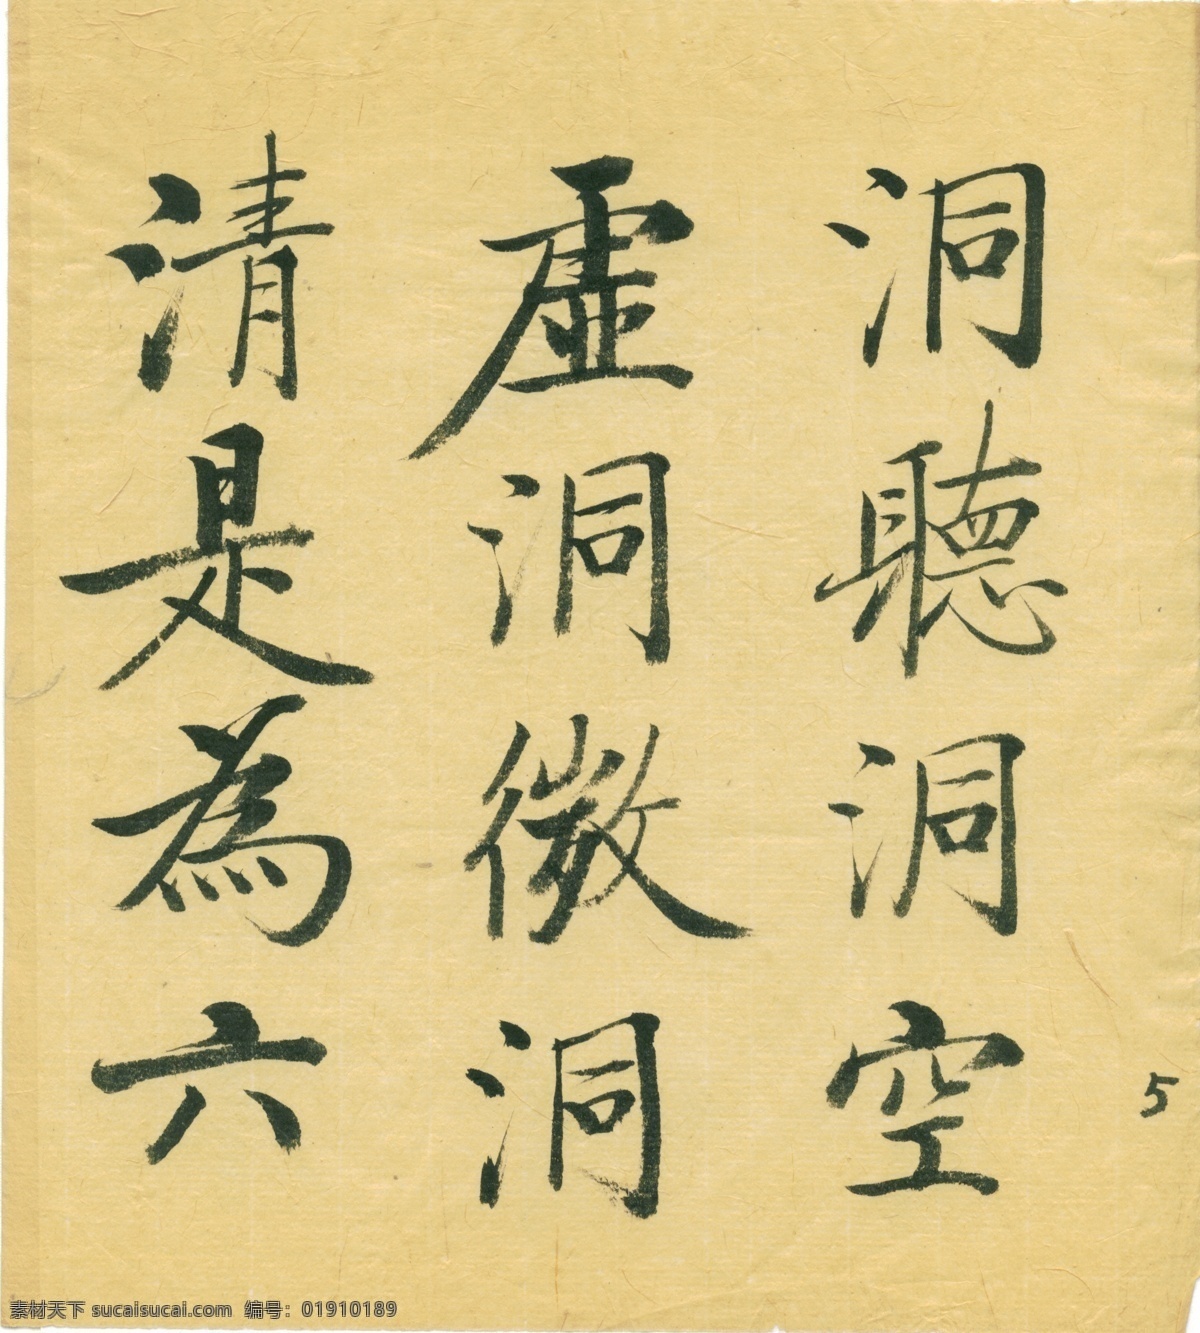 洞聽洞空
虛洞微洞
清是為六
5
素材天下 sucaisucai.com 编号：01910189